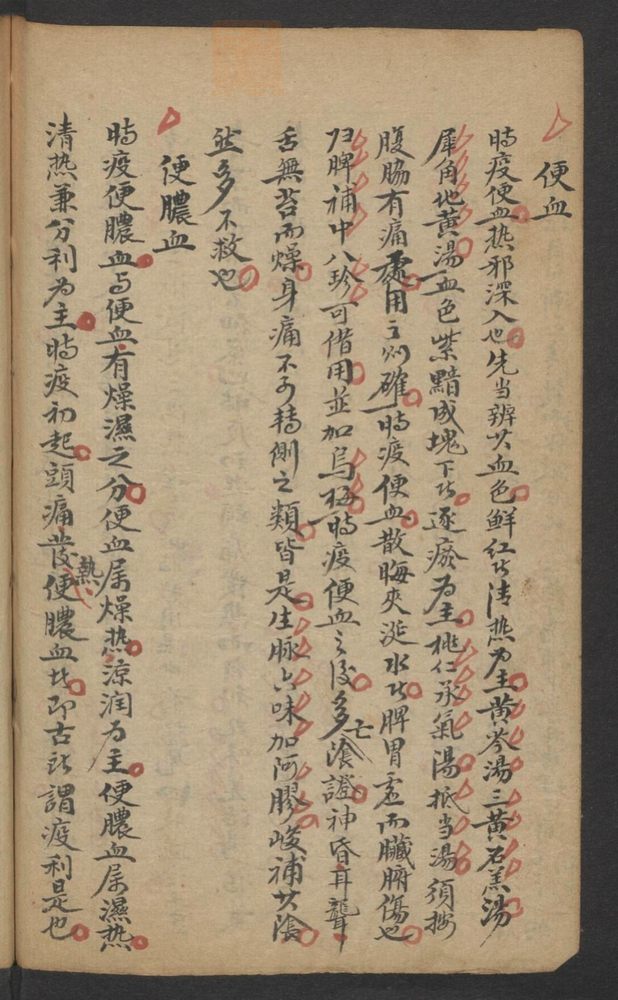 便血
時疫便血热邪深入也先当辨其血色鮮红者清热为主黄芩湯三黄石羔湯
犀角地黄湯血色紫黯成塊下者逐瘀为主桃仁承氣湯抵当湯須按
腹脇有痛處用之则確時疫便血散晦夾涎水者脾胃虚而臟腑傷也
归脾補中八珍可借用並加烏梅時疫便血之後多亡陰證神昏耳聾
舌無苔而燥身痛不可转側之類皆是生脉六味加阿膠峻補其陰
然多不救也
便膿血
時疫便膿血与便血有燥濕之分便血属燥热凉润为主便膿血属濕热
清热兼分利为主時疫初起頭痛發熱便膿血者即古所謂疫利是也